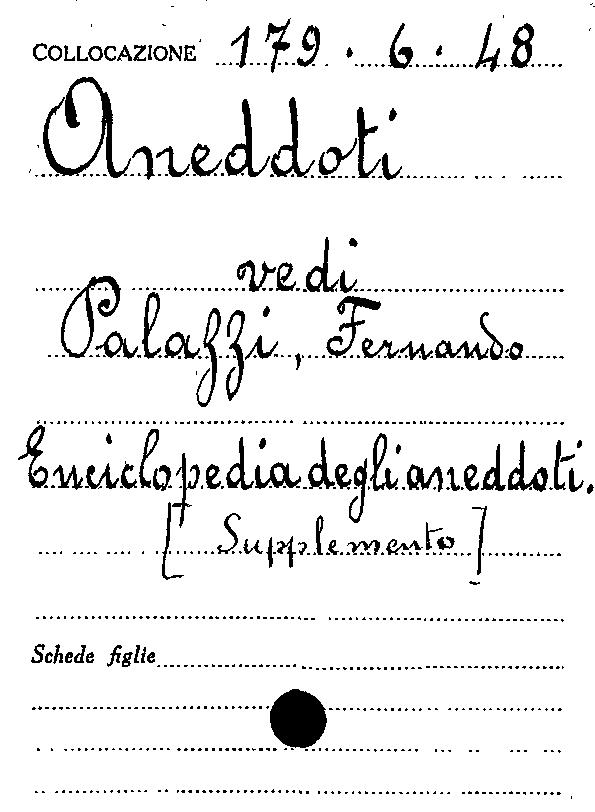 COLLOCAZIONE 179.6.48
Aneddoti
vedi
Palazzi, Fernando
Enciclopedia degli aneddoti.
[Supplemento]
Schede figlie